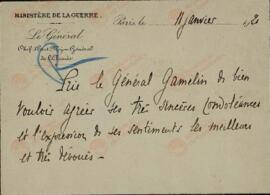 MINISTÈRE DE LA GUERRE.
Paris, le Janvier 192
Le Général
Chef d'État-Major Général
de l'Armée
Prie le Général Gamelin de bien
vouloir agréer ses très sincères condoléances
et l'expression de ses sentiments les meilleurs
et très dévoués -